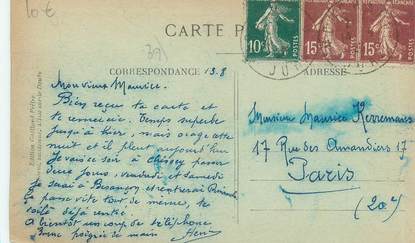 10 €
CARTE P
391
CORRESPONDANCE 13.8
ADRESSE
10c POSTES
15c POSTES
15c POSTES
Mon vieux Maurice.
Bien reçu ta carte et
te remercie. Temps superbe
jusqu'à hier, mais orage cette
nuit et il pleut aujourd'hui
Je vais ce soir à passer
deux jours, vendredi et samedi
Je serai à Besançon et rentrerai
passe vite tout de même, te
voilà déjà rentré.
A bientôt un coup de téléphone
Bonne poignée de main Henri
Monsieur Maurice Kerremans
17 Rue des Amandiers 17
Paris
(20e)